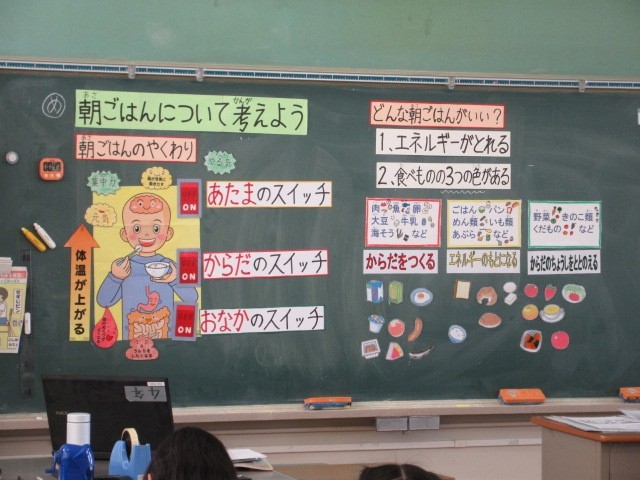 め
朝ごはんについて考えよう
あさ
かんが
朝ごはんのやくわり
あさ
集中力
やる気
体温が上がる
ON
あたまのスイッチ
ON
からだのスイッチ
ON
おなかのスイッチ
どんな朝ごはんがいい？
1、エネルギーがとれる
2、食べものの3つの色がある
肉 魚 卵
大豆 牛乳
海そう など
からだをつくる
ごはん パン
めん類 いも類
あぶら など
エネルギーのもとになる
野菜 きのこ類
くだもの など
からだのちょうしをととのえる
4年